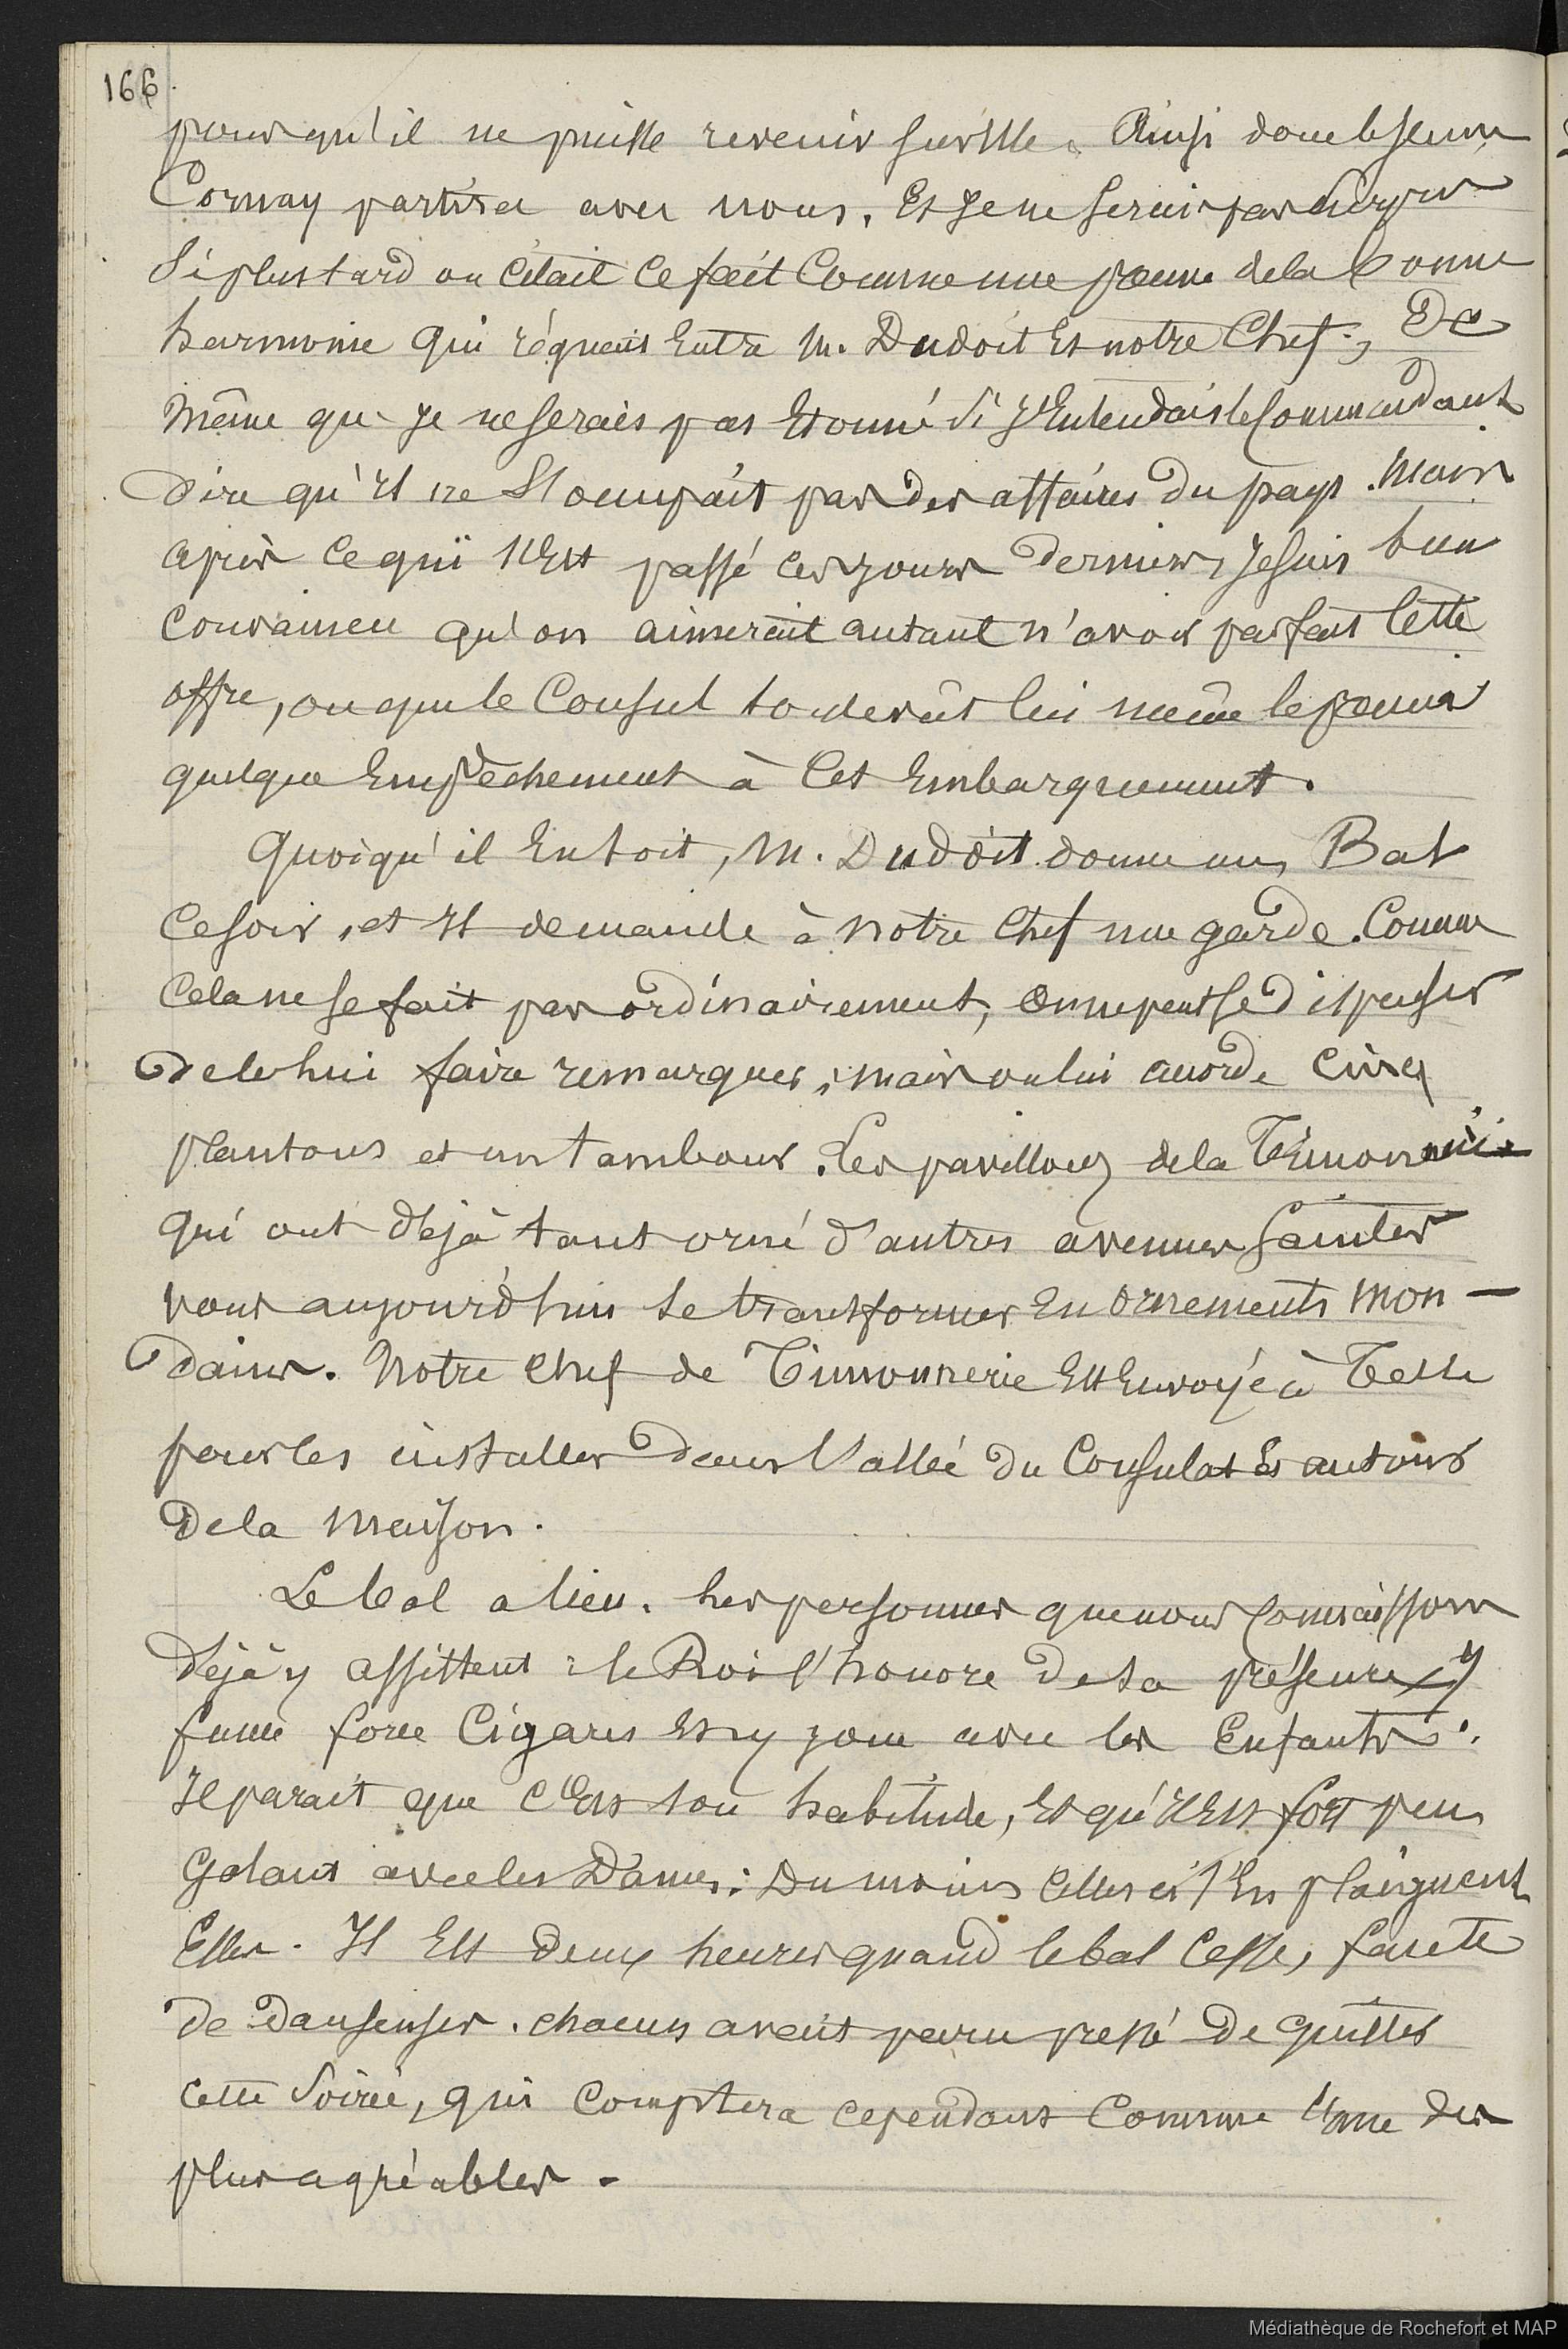 166
pour qu'il ne puisse revenir sur elle. Ainsi donc le jeune
Cornay partira avec nous. Et je ne serais pas surpris
si plus tard on citait ce fait comme une preuve de la bonne
harmonie qui régnait entre M. Dudoit et notre Chef; De
même que je ne serais pas etonné si j'entendais le Commandant
dire qu'il ne s'occupait pas des affaires du pays. Mais
après ce qui s'est passé ces jours derniers, je suis bien
convaincu qu'on aimerait autant n'avoir pas fait cette
offre, ou que le Consul soulevât lui même
quelque empêchement à cet embarquement.
Quoiqu'il en soit, M. Dudoit donne un Bal
ce soir, et il demande à notre Chef une garde. Comme
cela ne se fait pas ordinairement, on ne peut se dispenser
de le lui faire remarquer, mais on lui accorde cinq
plantons et un tambour. Les pavillons de la Timonnerie
qui ont déjà tant orné d'autres avenues saintes
vont aujourd'hui se transformer en ornements mon-
dains. Notre chef de Timonnerie est envoyé à Terre
pour les installer dans l'allée du Consulat et autour
de la maison.
Le bal a lieu. Les personnes que nous connaissons
déjà y assistent : le Roi l'honore de sa présence, y
fume force cigares et y joue avec les enfants.
Il parait que c'est son habitude, et qu'il est fort peu
galant avec les Dames : Du moins celles ci s'en plaignent
elles. Il est deux heures quand le bal cesse, faute
de danseuses. Chacun avait paru pressé de quitter
cette soirée, qui comptera cependant comme l'une des
plus agréables.
Médiathèque de Rochefort et MAP